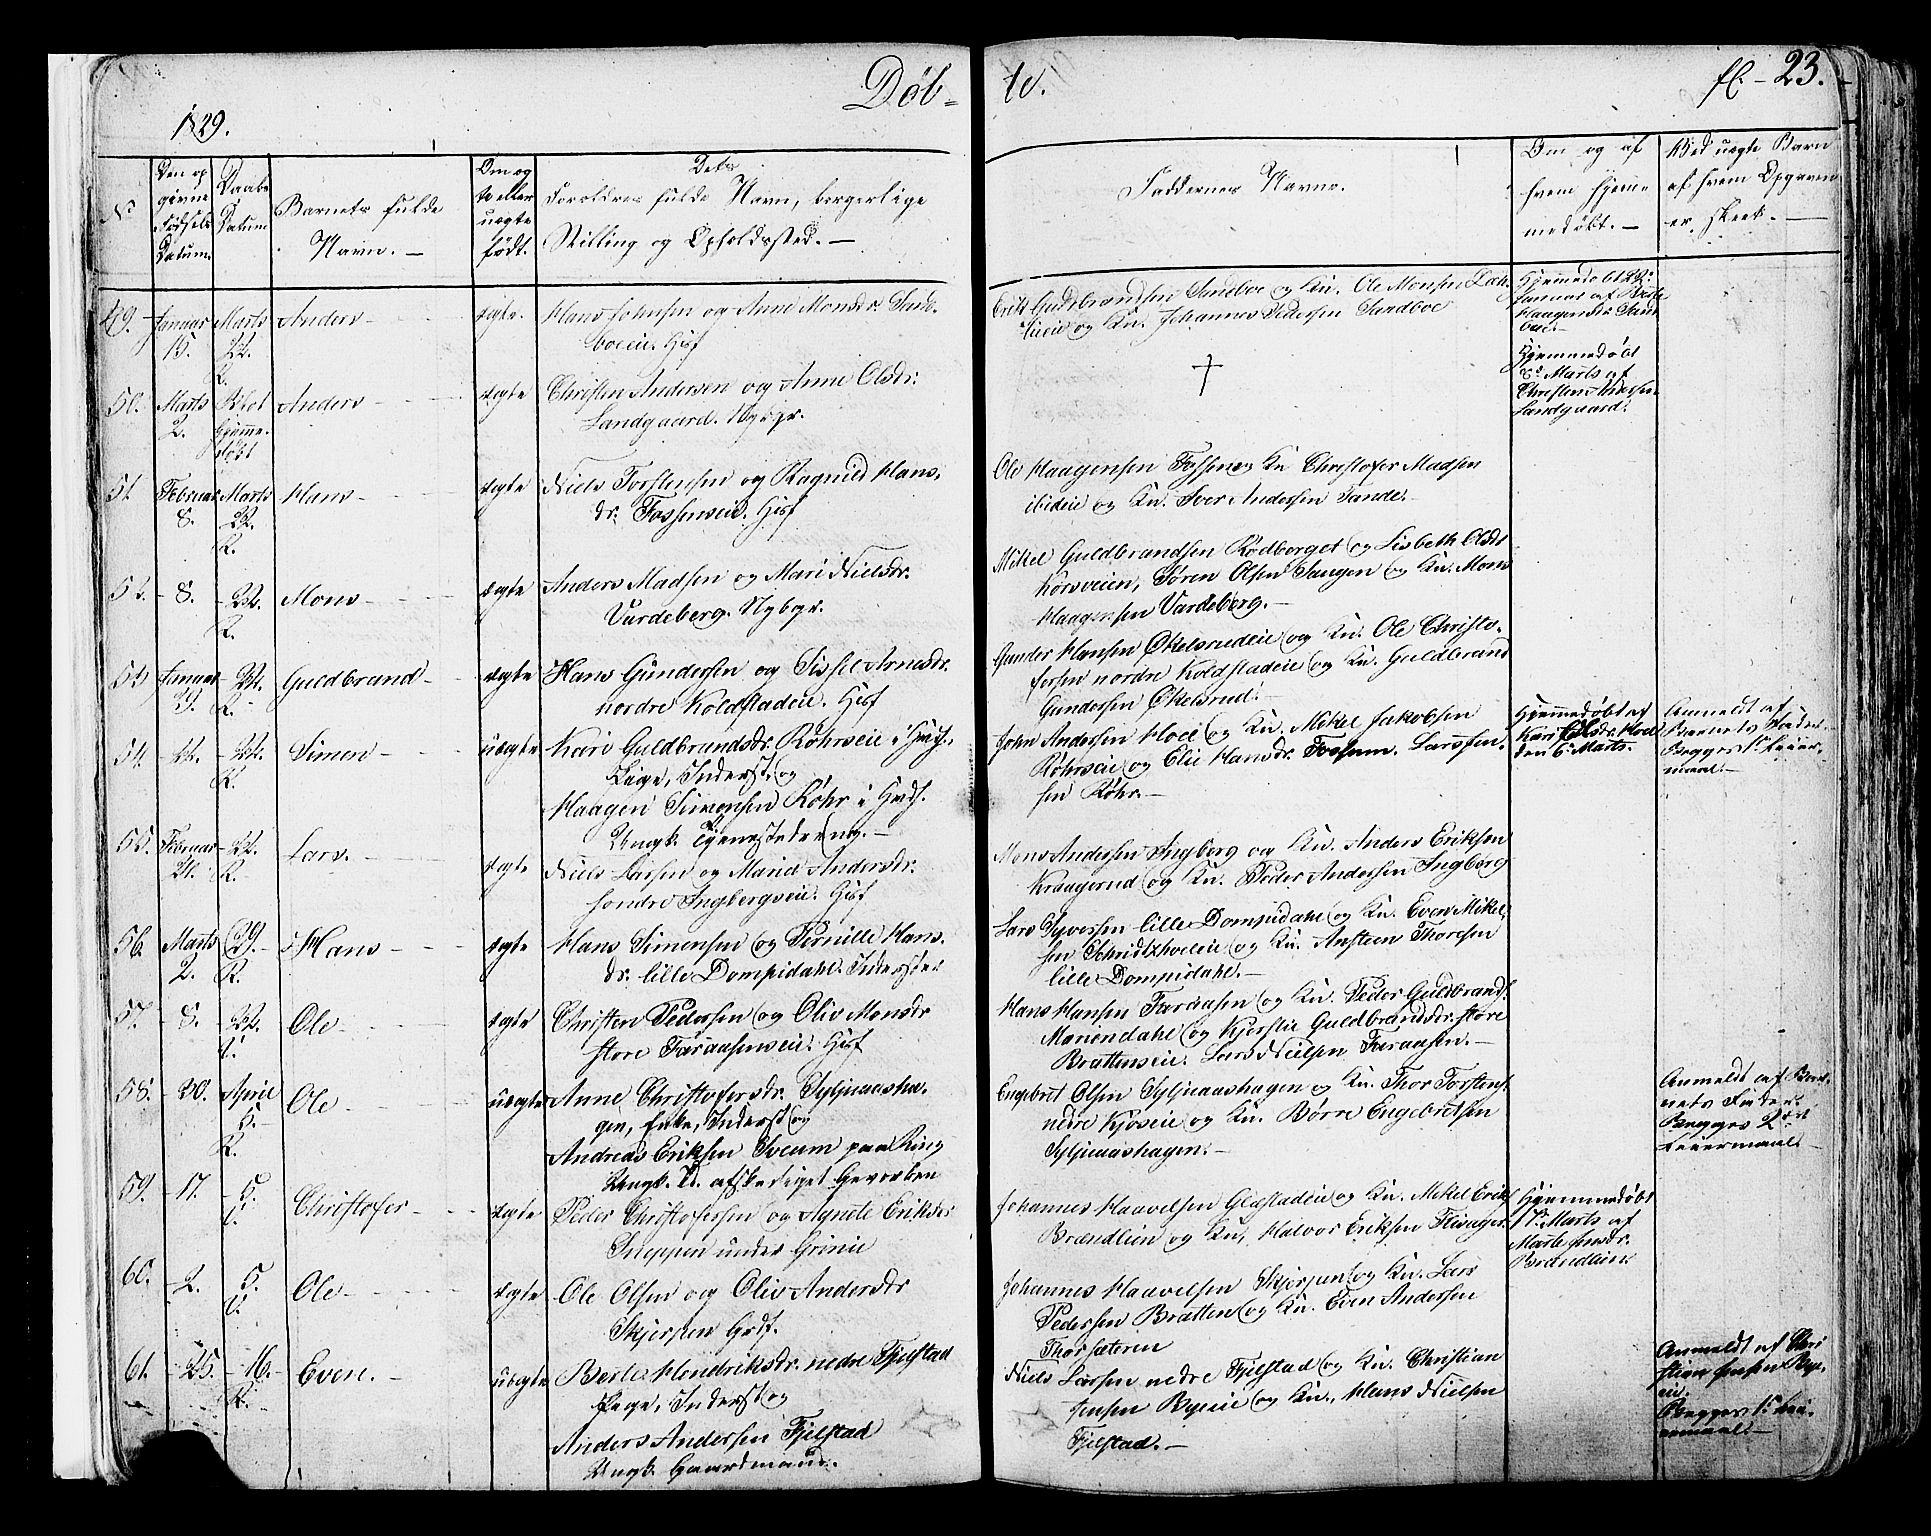 Døb- te. fl- 23.
1829.
No
Den op
givne
Fødsels
Datum.
Daabs
Datum
Barnets fulde
Navn. —
Om æg
te eller
uægte
født.
Dets
Forældres fulde Navn, borgerlige
Stilling og Opholdssted. —
Faddernes Navne.
Om og af
hvem hjem-
medøbt. —
Ved uægte Barn
af hvem Opgaven
er skeet. —
49. Januar 15. Marts 22. R.
Anders
ægte.
Hans Johnsen og Anne Monsdr.
Erik Guldbrandsen Sandboe og Ku. Ole Monsen
og Ku. Johannes Pedersen Sandboe
Hjemmedøbt 22de
Januar af
Haagensdr. Sand
boe.
50. Marts 2. Blot Hjemme døbt
Anders
ægte
Christen Andersen og Anne Olsdr.
Landgaard. Nybgr.
†
Hjemmedøbt
Marts af
Christen Andersen
Landgaard.
51. Februar 8. Marts 22. R.
Hans
ægte
Niels Torstensen og Ragnild Hans.
dr. Fossenseie. Husf
Ole Haagensen Fossen og Ku Christofer Madsen
ibideie og Ku. Iver Andersen Sande.
52. - 8. - 22. R.
Mons
ægte
Anders Madsen og Mari Nielsdr.
Vardeberg. Nybgr.
Mikel Guldbrandsen Rødborget og Lisbeth Olsdr
Korsveien, Søren Olsen Sangen og Ku. Mons
Haagensen Vardeberg. —
53. Januar 29. - 22. R.
Guldbrand
ægte
Hans Gundersen og Sissel Arnesdr.
nordre Koldstadeie. Husf
Gunder Hansen Økelsrudeie og Ku. Ole Christo-
fersen nordre Koldstadeie og Ku. Guldbrand
Gundersen Økelsrud.
54. - 22. - 22. R.
Simen
uægte
Kari Guldbrandsdr. Røhrseie i
Pige, Inderst, og
Haagen Simensen Røhr i
Ungk. Tjenestedreng. —
John Andersen Hoel og Ku. Mikel Jakobsen
Røhrseie og Elie Hansdr. Fossum. Lars
sen Røhr. —
Hjemmedøbt af
Kari Olsdr. Hoel
den 6te Marts.
Anmeldt af
Barnets Fader.
Begges 1ste Leier-
maal. —
55. Februar 21. - 22. R.
Lars.
ægte
Niels Larsen og Marie Andersdr.
søndre Ingbergseie. Husf
Mons Andersen Ingberg og Ku. Anders Eriksen
Kraagerud og Ku. Peder Andersen Ingberg
56. Marts 2. 29. R.
Hans
ægte
Hans Simensen og Pernille Hans.
dr. lille Dompidahl. Inderster
Lars Syversen lille Dompidahl og Ku. Even Mikel
sen og Ku. Ansteen Thoresen
lille Dompidahl. —
57. - 8. - 22.
Ole
ægte
Christen Pedersen og Oliv Monsdr
store Faraasenseie. Husf
Hans Hansen Faraasen og Ku. Peder Guldbrands.
Moriendahl og Kjerstie Guldbrandsdr. store
Brattenseie. Lars Nielsen Faraasen. —
58. - 20. April 5. R.
Ole
uægte
Anne Christofersdr. Syljuaasha.
gen, Enke, Inderst og
Andreas Eriksen Sveum paa Ring
Ungk. afskediget Gevorben
Engebret Olsen Syljuaashagen og Ku. Thor Torstens.
nedre Kjøseie og Ku. Børre Engebretsen
Syljuaashagen. —
Anmeldt af Bar-
nets Fader.
Begges 2det
Leiermaal
59. - 17. - 5.
Christofer
ægte
Peder Christofersen og Agnete Eriksdr
Sneppen under Grinie
Johannes Haavelsen Glæstadeie og Ku. Mikel Erik
Brændlien og Ku, Halvor Eriksen
Hjemmedøbt
Marts af
Marte Jensdr.
Brændlien.
60. - 2. 5.
Ole
ægte
Ole Olsen og Oliv Andersdr
Skjerpen Grdf.
Johannes Haavelsen Skjerpen og Ku. Lars
Pedersen Bratten og Ku. Even Andersen
Thorsæteren
61. - 25. - 16. R.
Even.
uægte
Berte Hendriksdr. nedre Fjelstad
Pige, Inderst og
Anders Andersen Fjelstad
Ungk. Gaardmand.
Niels Larsen nedre Fjelstad og Ku. Christian
Jensen Byeeie og Ku., Hans Nielsen
Fjelstad. —
Anmeldt af Chri
stian Jensen Bye
eie.
Begges 1ste Lei-
ermaal